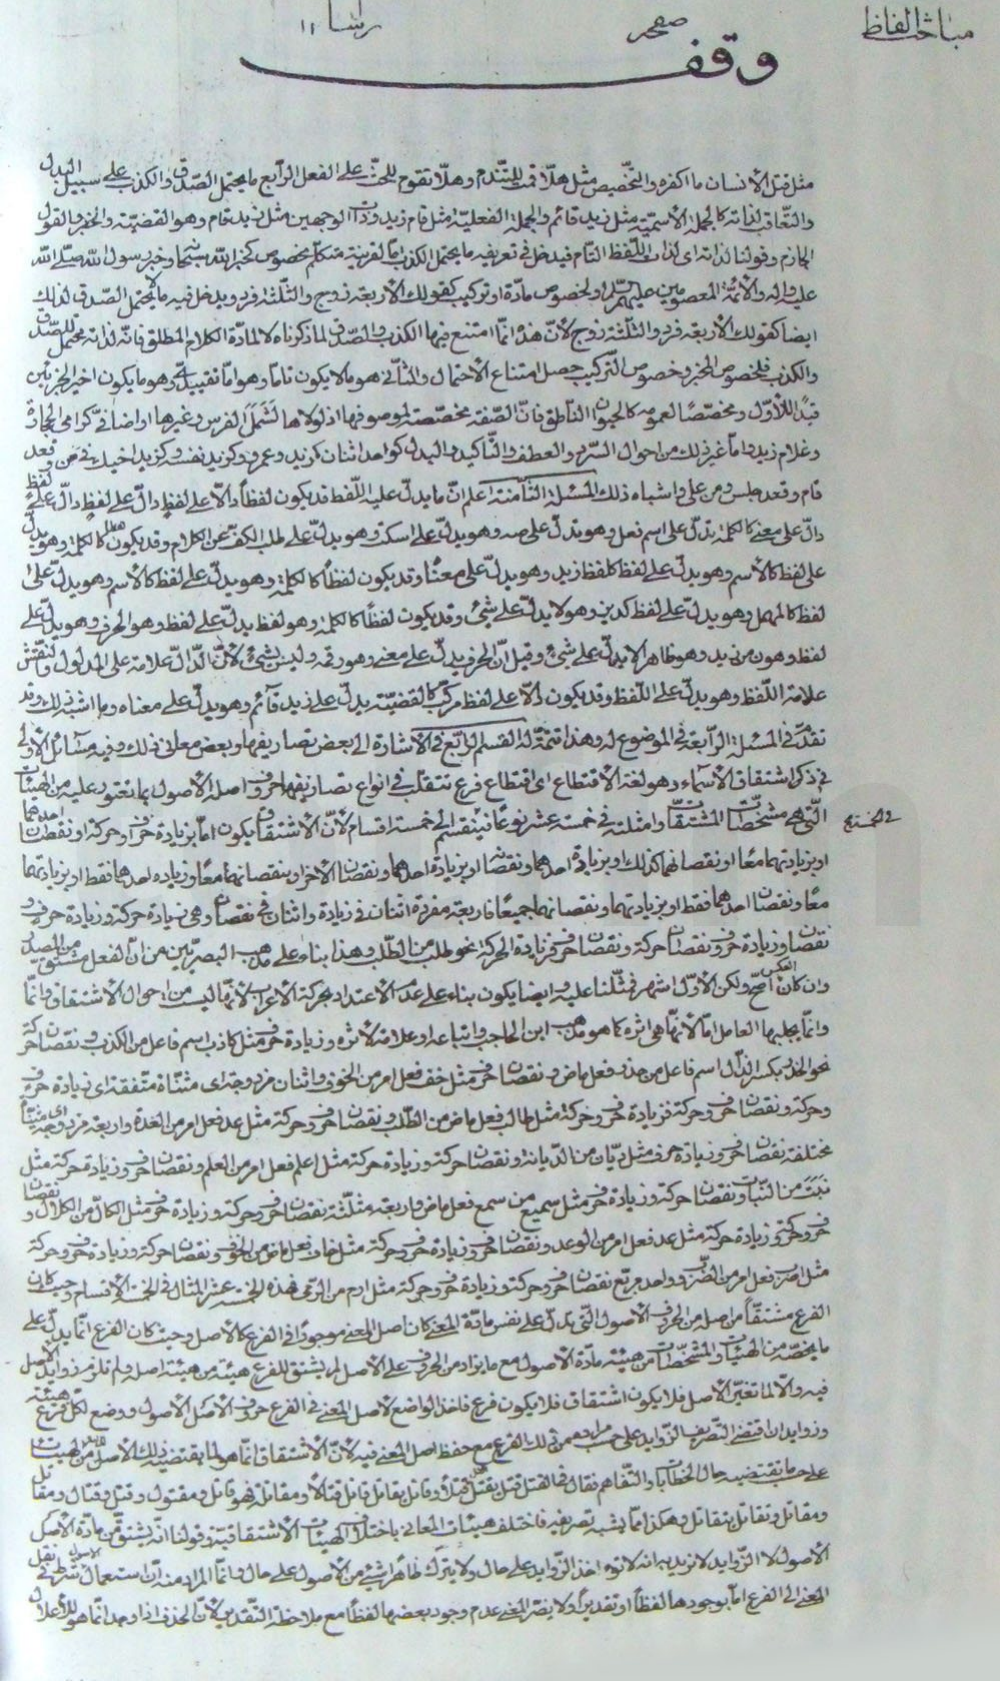 مباحث الفاظ
صفحه
١١
وقف
مثل قتل الانسان ما اكفره والتخصيص مثل هلّا قمت للتندم وهلّا تقوم للحثّ على الفعل الرابع ما يحتمل الصّدق والكذب على سبيل البدل
والتّعاقب لذاته كالجملة الاسميّة مثل زيد قائم والجملة الفعليّة مثل قام زيد وذات الوجهين مثل زيد قام وهو القضيّة والخبر والقول
الجازم وقولنا لذاته اى لذات اللّفظ التام فيدخل فى تعريفه ما يحتمل الكذب امّا لقرينة متكلّم مخصوص كخبر اللّه سبحانه وخبر رسول اللّه صلّى اللّه
عليه واله والائمّة المعصومين عليهم السّلم او لخصوص مادّة او تركيب كقولك الاربعة زوج والثلثة فرد ويدخل فيه ما لا يحتمل الصّدق لذلك
ايضا كقولك الاربعة فرد والثلثة زوج لانّ هذه انّما امتنع فيها الكذب والصّدق لما ذكرناه لا لمادّة الكلام المطلق فانّه لذاته محتمل للصّدق
والكذب فلخصوص المخبر وخصوص التّركيب حصل امتناع الاحتمال والثانى هو ما لا يكون تاما وهو امّا تقييدىّ وهو ما يكون اخير الجزئين
قيدًا للاوّل ومخصّصًا لعمومه كالحيوان النّاطق فانّ الصّفة مخصّصة لموصوفها اذ لولاها لشمل الفرس وغيرها او اضافىّ كرامى الحجارة
وغلام زيد واما غير ذلك من احوال السّرد والعطف والتّاكيد والبدل كواحد اثنان كزيد وعمرو وكزيد نفسه وكزيد اخيك فى من وقعد
قام وقعد جلس ومن على واشباه ذلك المسئلة الثامنة اعلم انّ ما يدلّ عليه اللّفظ قد يكون لفظاً دالّا على لفظ دالّ على لفظ دالّ على لفظ
دالّ على معنى كالكلمة تدلّ على اسم فعل وهو يدلّ على صه وهو يدلّ على اسكت وهو يدلّ على طلب الكفّ عن الكلام وقد يكون لفظا كالكلمة وهو يدلّ
على لفظ كالاسم وهو يدلّ على لفظ كلفظ زيد وهو يدلّ على معنًا وقد يكون لفظاً كالكلمة وهو يدلّ على لفظ كالاسم وهو يدلّ على
لفظ كالمهمل وهو يدلّ على لفظ كديز وهو لا يدلّ على شئ وقد يكون لفظًا كالكلمة وهو لفظ يدلّ على لفظ وهو الحرف وهو يدلّ على
لفظ وهو ن من زيد وهو ظاهر الا يدلّ على شئ وقيل انّ الحرف يدلّ على معنى وهو رقمه وليس بشئ لانّ الدّالّ علامة على المدلول والنّقش
علامة اللّفظ وهو يدلّ على اللّفظ وقد يكون دالّا على لفظ مركّب كالقضيّة يدلّ على زيد قائم وهو يدلّ على معناه وما اشبه ذلك وقد
تقدّم فى المسئلة الرّابعة فى الموضوع له وهذا تتمّة له القسم الرّابع فى الاشارة الى بعض تصاريفها وبعض معانى ذلك وفيه مسائل الاولى
فى ذكر اشتقاق الاسماء وهو لغة الاقتطاع اى اقتطاع فرع تتقلّب فى انواع تصاريفها حروف اصله الاصول بما يعتور عليه من الهيئات
الّتى هى مشخّصات المشتقّات وامثلته فى خمسة عشر نوعًا فينقسم الى خمسة اقسام لانّ الاشتقاق يكون امّا بزيادة حرف او حركة او نقصان احدهما
او بزيادتهما معًا او نقصانهما كذلك او بزيادة احدهما ونقصانه او بزيادة احدهما ونقصان الاخر او بنقصانهما معًا وزياده احدهما فقط او بزيادتهما
معًا ونقصان احدهما فقط او بزيادتهما ونقصانهما جميعًا فاربعة مفردة اثنان فى زيادة واثنان فى نقصان وهى زيادة حركة وزيادة حرف و
نقصان وزيادة حرف ونقصان حركة ونقصان حرف فزيادة الحركة نحو طلب من الطّلب وهذا بناء على مذهب البصريّين من انّ الفعل مشتقّ من المصدر
وان كان العكس اصحّ ولكن الاوّل اشهر فمثّلنا عليه وايضا يكون بناء على عدم الاعتداد بحركة الاعراب لانّها ليست من احوال الاشتقاق وانّما
وانّما يجلبها العامل امّا لانّها هى اثره كما هو مذهب ابن الحاجب واتباعه او علامة لاثره وزيادة حرف مثل كاذب اسم فاعل من الكذب ونقصان حركة
نحو الحذر بكسر الذّال اسم فاعل من حذر فعل ماض ونقصان حرف مثل خف فعل امر من الخوف واثنان مزدوجة اى مثنّاة متّفقة اى زيادة حرف
وحركة ونقصان حرف وحركة فزيادة حرف وحركة مثل طالب فعل ماض من الطّلب ونقصان حرف وحركة مثل عد فعل امر من العدة واربعة مزدوجة اى مثنّاة
مختلفة نقصان حرف وزيادة حرف مثل ديّان من الدّيانة ونقصان حركة وزيادة حركة مثل اعلم فعل امر من العلم ونقصان حرف وزيادة حركة مثل
نبت من النّبات ونقصان حركة وزيادة حرف مثل سميع من سمع فعل ماض واربعة مثلّثة نقصان حرف وحركة وزيادة حرف مثل الكالّ من الكلال ونقصان
حرف وحركة وزيادة حركة مثل عد فعل امر من الوعد ونقصان حرف وزيادة حرف وحركة مثل خاف فعل ماض من الخوف ونقصان حركة وزيادة حرف وحركة
مثل اضرب فعل امر من الضّرب وواحد مربّع نقصان حرف وحركة وزيادة حرف وحركة مثل ارم من الرّمى فهذه الخمسة عشر المثال فى الخمسة الاقسام وحيث كان
الفرع مشتقّاً من اصله من الحروف الاصول الّتى تدلّ على نفس مادّة المعنى كان اصل المعنى موجودًا فى الفرع كالاصل وحيث كان الفرع انّما يدلّ على
ما يخصّه من الهيئات والمشخّصات من هيئة مادّة الاصول مع ما يزاد من الحروف على الاصل لم يشتق للفرع هيئة من هيئة اصله ولم تلزم زوايد الاصل
فيه والّا لما تغيّر الاصل فلا يكون اشتقاق فلا يكون فرع فاخذ الواضع لاصل المعنى فى الفرع حروف الاصل الاصول ووضع لكلّ فرع هيئة
وزوايد ان اقتضى التّصريف الزّوايد على حسب مرادهم من ذلك الفرع مع حفظ اصل المعنى فيه لانّ الاشتقاق انّما هو لما يقتضيه ذلك الاصل من الهيئات
على حسب ما يقتضيه حال الخطابات والتّفاهم فتقال فى القتل قتل يقتل قتلاً وقاتل يقاتل قاتل قتالًا ومقاتلة فهو قاتل ومقتول وقتل وقتال ومقاتل
ومقاتل وتقاتل يتقاتل وهكذا ممّا يشبه تصريفه فاختلف هيئات المعانى باختلاف الهيئات الاشتقاقية وقولنا انّه يشتق من مادّة الاصل
الاصول لا الزّوايد لا نريد به انّه لا توخذ الزّوايد على حال ولا يترك ظاهرًا شئ من الاصول على حال فانّما المراد منه انّ استعمال الاصول شرط فى نقل
المعنى الى الفرع امّا بوجودها لفظاً او تقديرًا ولا يضرّ المعنى عدم وجود بعضها لفظاً مع ملاحظة التّقدير لانّ الحذف اذا وجد انّما هو للاعلال